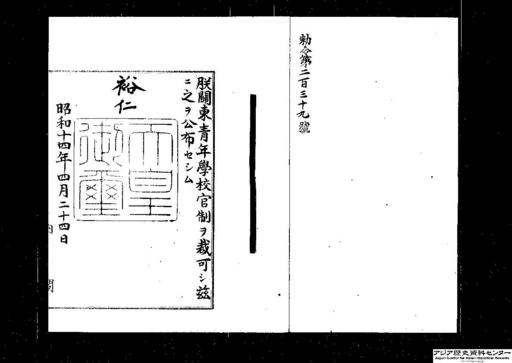 勅令第二百三十九號
朕關東青年學校官制ヲ裁可シ茲
ニ之ヲ公布セシム
裕仁
天皇御璽
昭和十四年四月二十四日
内閣
アジア歴史資料センター
Japan Center for Asian Historical Records